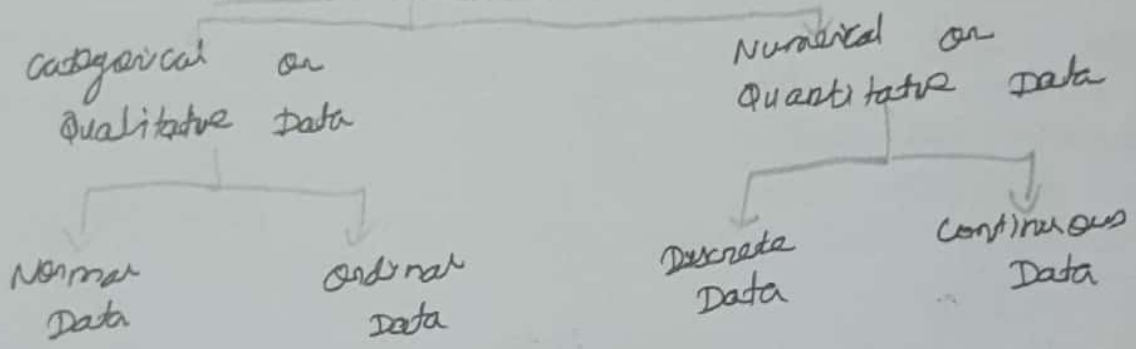 Categorical or
Qualitative Data
Numerical or
Quantitative Data
Normal
Data
Ordinal
Data
Discrete
Data
Continuous
Data